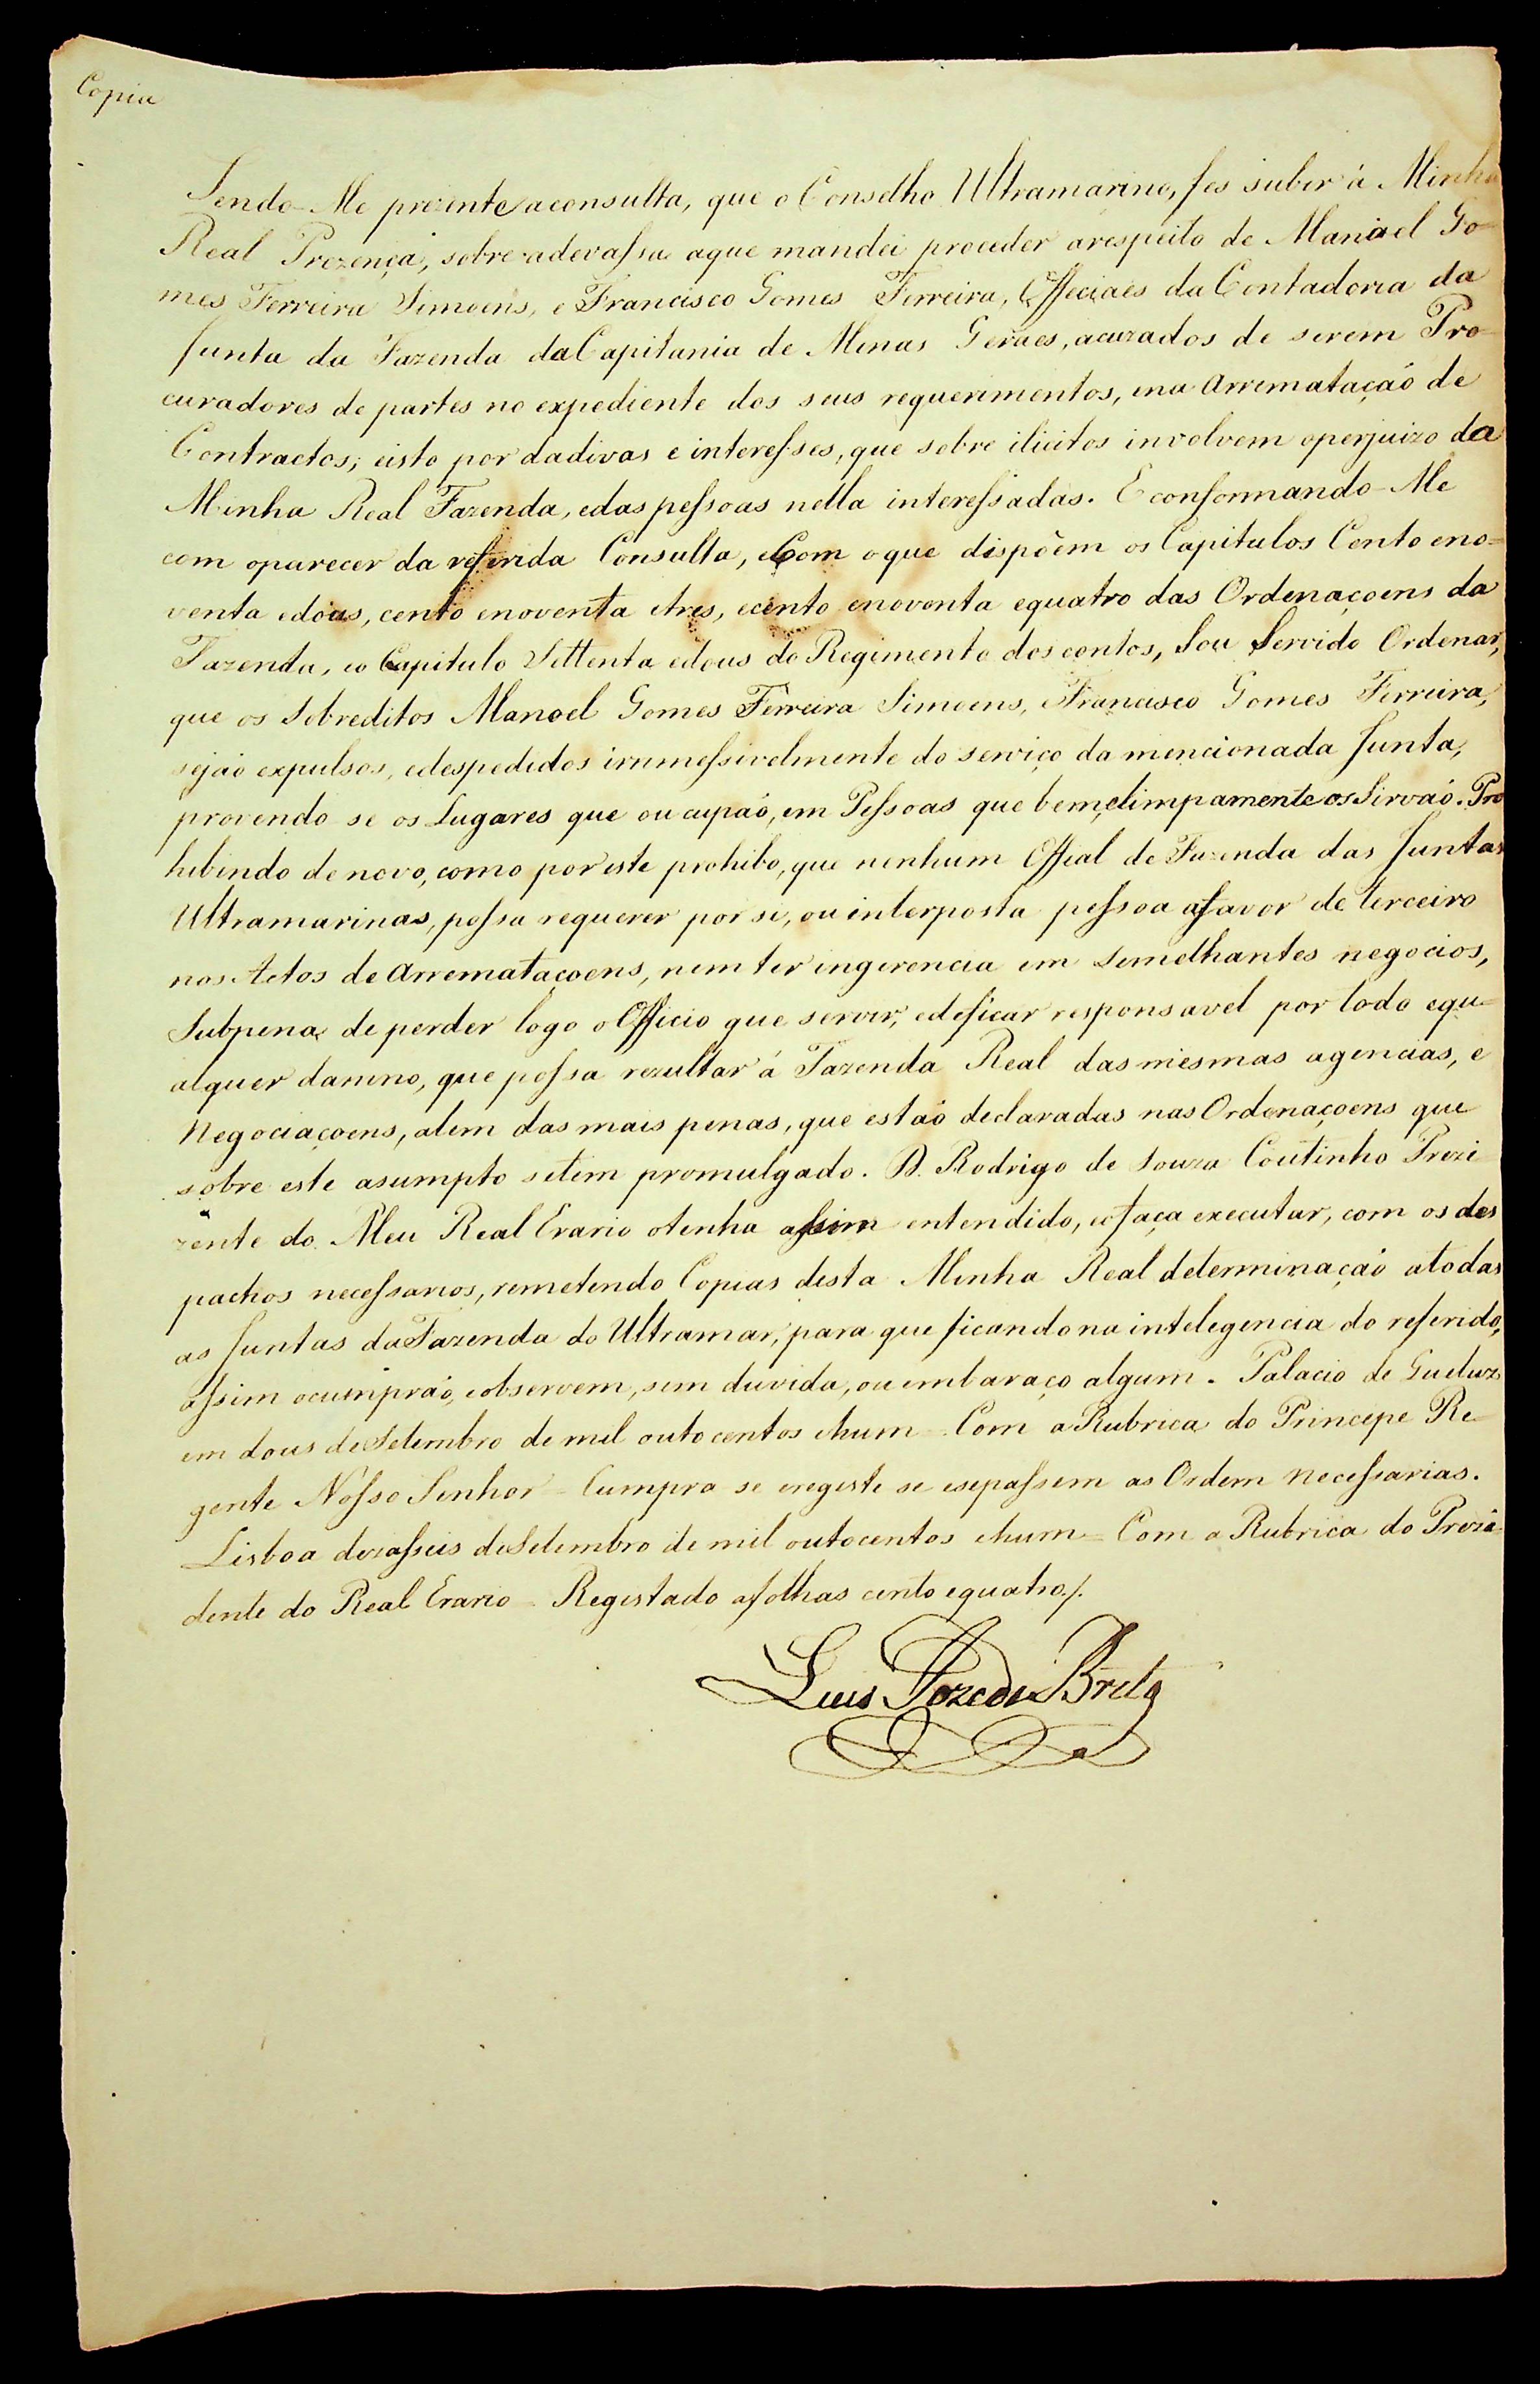 Copia
Sendo-Me prezente aconsulta, que o Conselho Ultramarino, fes subir á Minha
Real Prezença, sobre adevassa aque mandei proceder arespeito de Manoel Go=
mes Ferreira Simoens, e Francisco Gomes Ferreira, Officiaes da Contadoria da
Junta da Fazenda da Capitania de Minas Geraes, acuzados de serem Pro=
curadores de partes no expediente dos seus requerimentos, ena Arrematação de
Contractos; eisto por dadivas e interesses, que sobre ilicitos involvem operjuizo da
Minha Real Fazenda, edas pessoas nella interessadas. E conformando-Me
com oparecer da referida Consulta, eCom oque dispõem os Capitulos Cento eno=
venta edous, cento enoventa etres, ecento enoventa equatro das Ordenaçoens da
Fazenda, eo Capitulo Settenta edous do Regimento dos contos, Sou Servido Ordenar,
que os Sobreditos Manoel Gomes Ferreira Simoens, eFrancisco Gomes Ferreira,
sejão expulsos, edespedidos irremessivelmente do serviço da mencionada Junta,
provendo se os Lugares que oucupaõ, em Pessoas que bem, elimpamente os Sirvaõ. Pro
hibindo de novo, como por este prohibo, que nenhum Offical de Fazenda das Juntas
Ultramarinas, possa requerer por si, ou interposta pessoa afavor de terceiro
nos Actos de Arremataçoens, nem ter ingerencia em semelhantes negocios,
Subpena de perder logo o Officio que servir, edeficar responsavel por todo equ=
alquer damno, que possa rezultar á Fazenda Real das mesmas agencias, e
Negociaçoens, alem das mais penas, que estaõ declaradas nas Ordenaçoens que
sobre este asumpto setem promulgado. D. Rodrigo de Souza Coutinho Prezi
zente do Meu Real Erario otenha assim entendido, eofaça executar, com os des
pachos necessarios, remetendo Copias desta Minha Real determinaçaõ atodas
as Juntas da Fazenda do Ultramar, para que ficando na intelegencia do referido,
assim ocumpraõ, eobservem, sem duvida, ou embaraço algum. Palacio de Gueluz
em dous de Setembro de mil outocentos ehum = Com a Rubrica do Principe Re=
gente Nosso Senhor = Cumpra se eregiste se esepassem as Ordem necessarias.
Lisboa dezasseis de Setembro de mil outocentos ehum = Com a Rubrica do Prezi=
dente do Real Erario = Registado afolhas cento equatro/.
Luis Joze de Brito